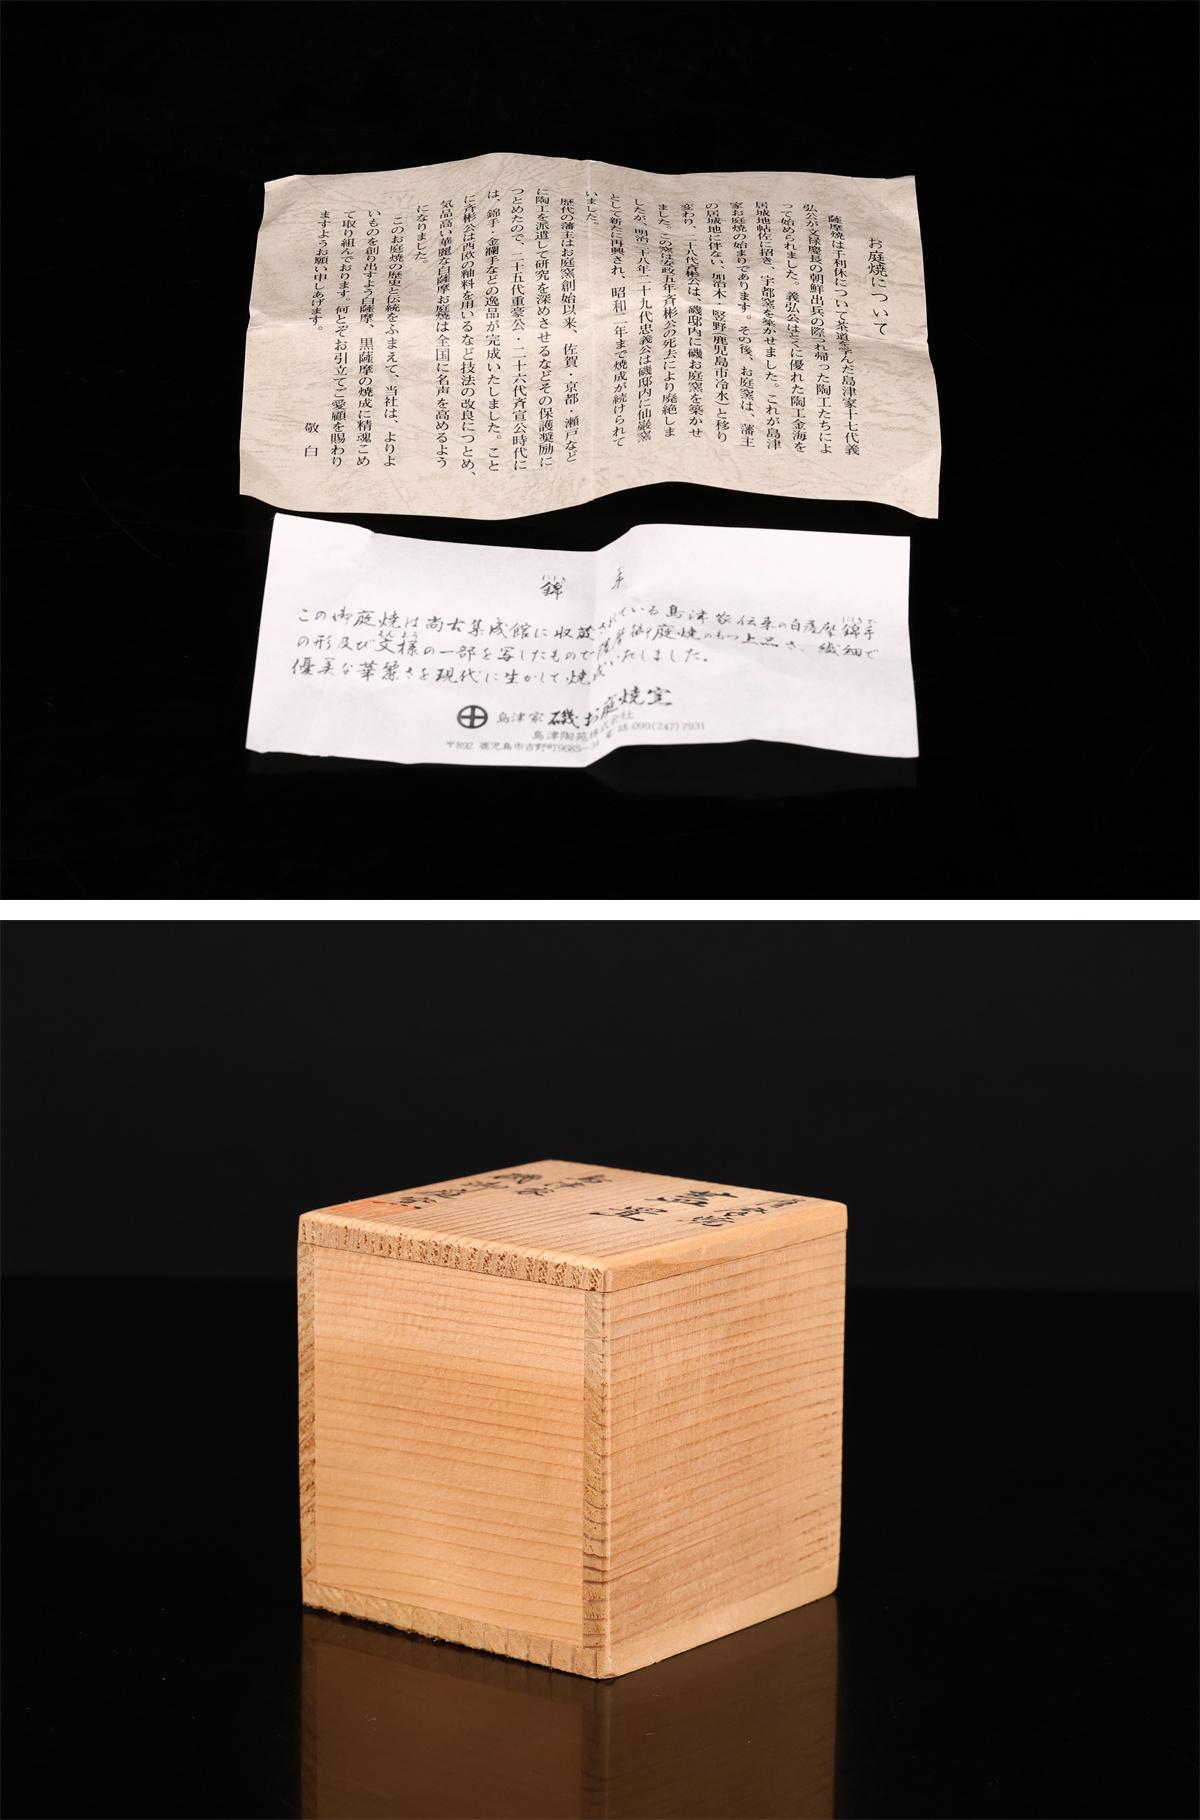 お庭焼について
薩摩焼は千利休について茶道を学んだ島津家十七代義
弘公が文禄慶長の朝鮮出兵の際つれ帰った陶工たちによ
って始められました。義弘公はとくに優れた陶工金海を
居城地帖佐に招き、宇都窯を築かせました。これが島津
家お庭焼の始まりであります。その後、お庭窯は、藩主
の居城地に伴ない、加治木・竪野(鹿児島市冷水)と移り
変わり、二十八代斉彬公は、磯邸内に磯お庭窯を築かせ
ました。この窯は安政五年斉彬公の死去により廃絶しま
したが、明治二十八年二十九代忠義公は磯邸内に仙巌窯
として新たに再興され、昭和二年まで焼成が続けられて
いました。
歴代の藩主はお庭窯創始以来、佐賀・京都・瀬戸など
に陶工を派遣して研究を深めさせるなどその保護奨励に
つとめたので、二十五代重豪公・二十六代斉宣公時代に
は、錦手・金襴手などの逸品が完成いたしました。こと
に斉彬公は西欧の釉料を用いるなど技法の改良につとめ、
気品高い華麗な白薩摩お庭焼は全国に名声を高めるよう
になりました。
このお庭焼の歴史と伝統をふまえて、当社は、よりよ
いものを創り出すよう白薩摩、黒薩摩の焼成に精魂こめ
て取り組んでおります。何とぞお引立てご愛顧を賜わり
ますようお願い申しあげます。
敬白
錦手
この御庭焼は尚古集成館に収蔵されている島津家伝来の白薩摩錦手
の形及び文様の一部を写したもので薩摩御庭焼のもつ上品さ、繊細で
優美な華麗さを現代に生かして焼成いたしました。
島津家 磯お庭焼窯
島津陶苑株式会社
〒892 鹿児島市吉野町9685-34 電話 099(247)7931